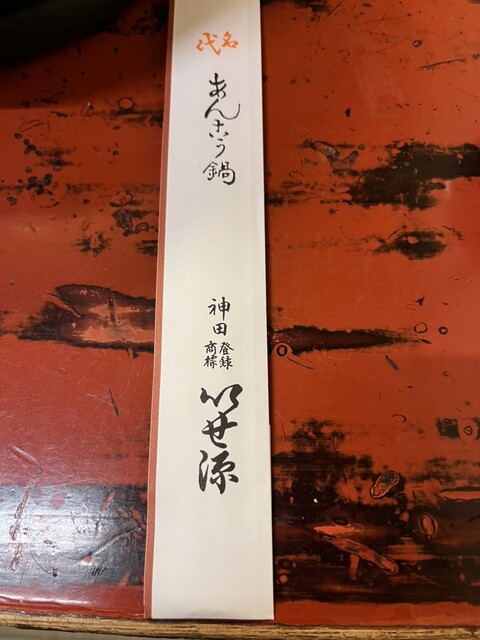 名代
あんこう鍋
神田
登録
商標
いせ源